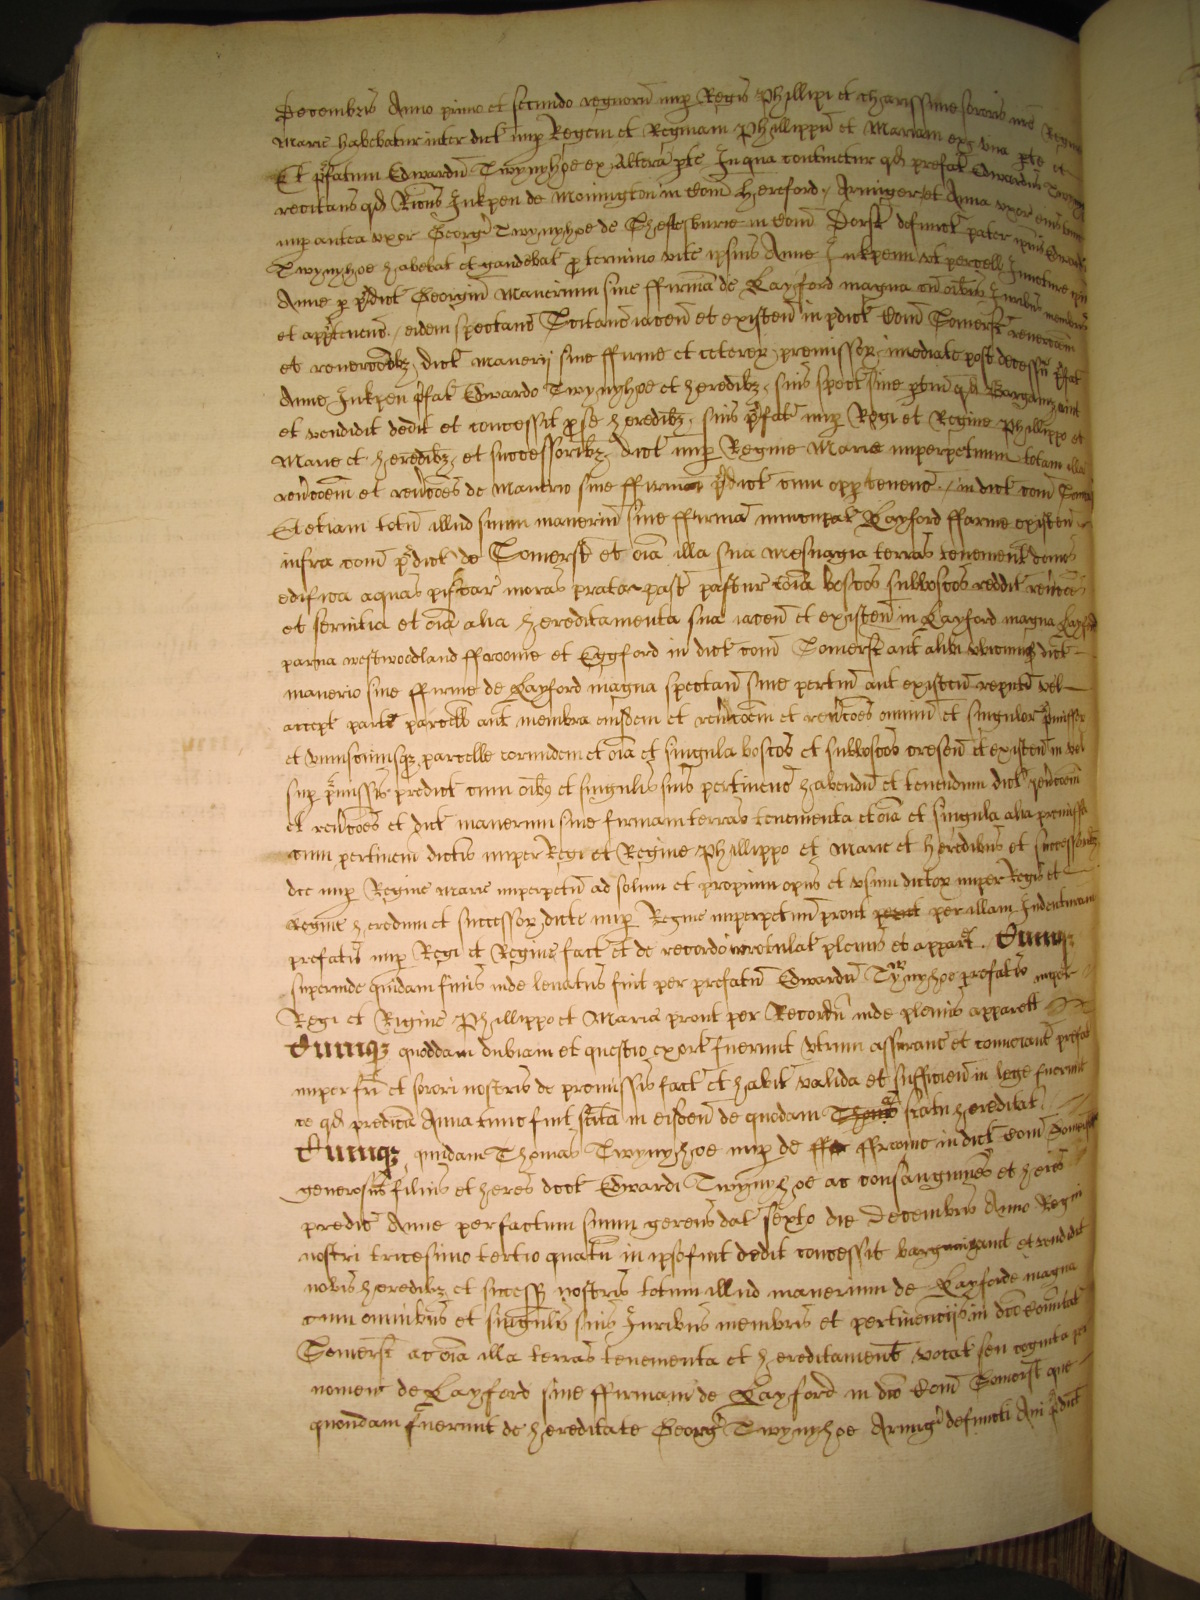 Decembris Anno primo et secundo regnorū nup Regis Phillipi et charissime sororis nrē Regine
Marie habebatur inter dict nup Regem et Reginam Phillippū et Mariam ex una pte et
Et pfatum Edwardū Twynyhoe ex Altera pte In qua continetur qd prefat Edwardus Twynyhoe
recitans qd Ricus Inkpen de Monington in Com Hereford Armiger et Anna uxor eius
nup antea uxor Georgij Twynyhoe de Sheftsburie in Com Dorst defunct pater ipius Edwardi
Twynyhoe habebat et gaudebat p termino vite ipsius Anne Inkpenn ut percell Juncture ipius
Anne p pdict Georgium Manerium sive ffirmā de Rayford magna cū oibus Juribus membris
et apptinenc eidem spectanc Scituanc iacen et existen in pdict Com Somerst revercoem
et revercoēs dict manerij sive ffirme et ceteror premissor imediate post decessū pfat
Anne Inkpen pfat Edwardo Twynyhoe et heredibz suis spect sive ptin qd Barganizavit
et vendidit dedit et concessit p se heredibz suis pfat nup Regi et Regine Phillippo et
Marie et heredibz et successoribz dict nup Regine Marie imperpetuum totam illam
rencoem et rencoes de Manerio sive ffirma pdict cum opp tenenc in dict com Somerst
Et etiam totū illud suum manerium sive ffirmā nuncupat Rayford ffarme existen
infra com pdict de Somerst et oia illa sua Mesuagia terras tenement domos
edificia aquas piscar moras prata past pastur coia boscos subboscos reddit rencoes
et servitia et oia alia hereditamenta sua iacen et existen in Rayford magna Rayford
parva westwoodland ffroome et Eggford in dict com Somerst aut alibi ubicunqz dict
manerio sive ffirme de Rayford magna spectan sive pertin aut existen reputat vel
accept part parcell aut membra eiusdem et rencoem et rencoes omniū et singulor pmissor
et uniuscuiusqz parcelle eorundem et oia et singula boscos et subboscos crescen et existen in vel
sup pmissis predict cum oibz et singulis suis pertinenc habendū et tenendum dict rencoem
et rencoes et dict manerium sive firmam terras tenementa et oia et singula alia premissa
cum pertinen dictis nuper Regi et Regine Phillippo et Marie et heredibus et successoribz
dce nup Regine Marie imperpetū ad solum et propium opus et usum dictor nuper Regis et
Regine heredum et successor dicte nup Regine imperpetuū prout per illam Indenturam
prefatis nup Regi et Regine fact et de recordo irrotulat plenius et apparet. Cumqz
superinde quidam finis inde levatus fuit per prefatū Edwardū Twynyhoe prefatis nuper
Regi et Rigine Phillippo et Marie prout per Recordū inde plenius apparett
Cumqz quoddam dubiam et questio exort fuerunt utrum assuranc et convoianc prefat
nuper fri et sorori nostris de premissis fact et habit valida et sufficien in lege fuerunt
eo qd predicta Anna tunc fuit seita in eisdem de quodam statu hereditat
Cumqz quidam Thomas Twynyhoe nup de ffroome in dict Com Somerst
generosus filius et heres dict Edwardi Twynyhoe ac consanguineus et heres
predic Anne per factum suum gerens dat sexto die Decembris Anno Regni
nostri tricesimo tertio quatū in ipso fuit dedit concessit barganizavit et vendidit
nobis heredibz et success nostris totum illud manerium de Rayforde magna
cum omnibus et singulis suis Juribus membris et pertinencijs in dco Comitat
Somerst ac oia illa terras tenementa et hereditament vocat seu cognita per
nomen de Rayford sive ffirmam de Rayford in dco Com Somerst que
quondam fuerunt de hereditate Georgij Twynyhoe Armigi defuncti Avi pdict